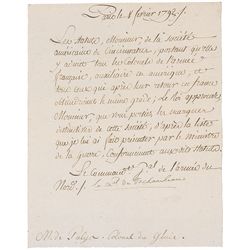 Paris le 8 février 1792.
Les statuts, Monsieur, de la société
américaine de Cincinnatus, portant qu'elle
y admet tous les Colonels de l'armée
française, auxiliaire en amérique, et
tous ceux qui après leur retour en france
obtiendroient le même grade, Le Roi approuve,
Monsieur, que vous portiez les marques
distinctives de cette société, d'après la liste
que je lui ai fait présenter par le ministre
de la guerre, conformément aux dits statuts.
Le Commandant Gal de l'armée du
Nord
M. de Colonel du